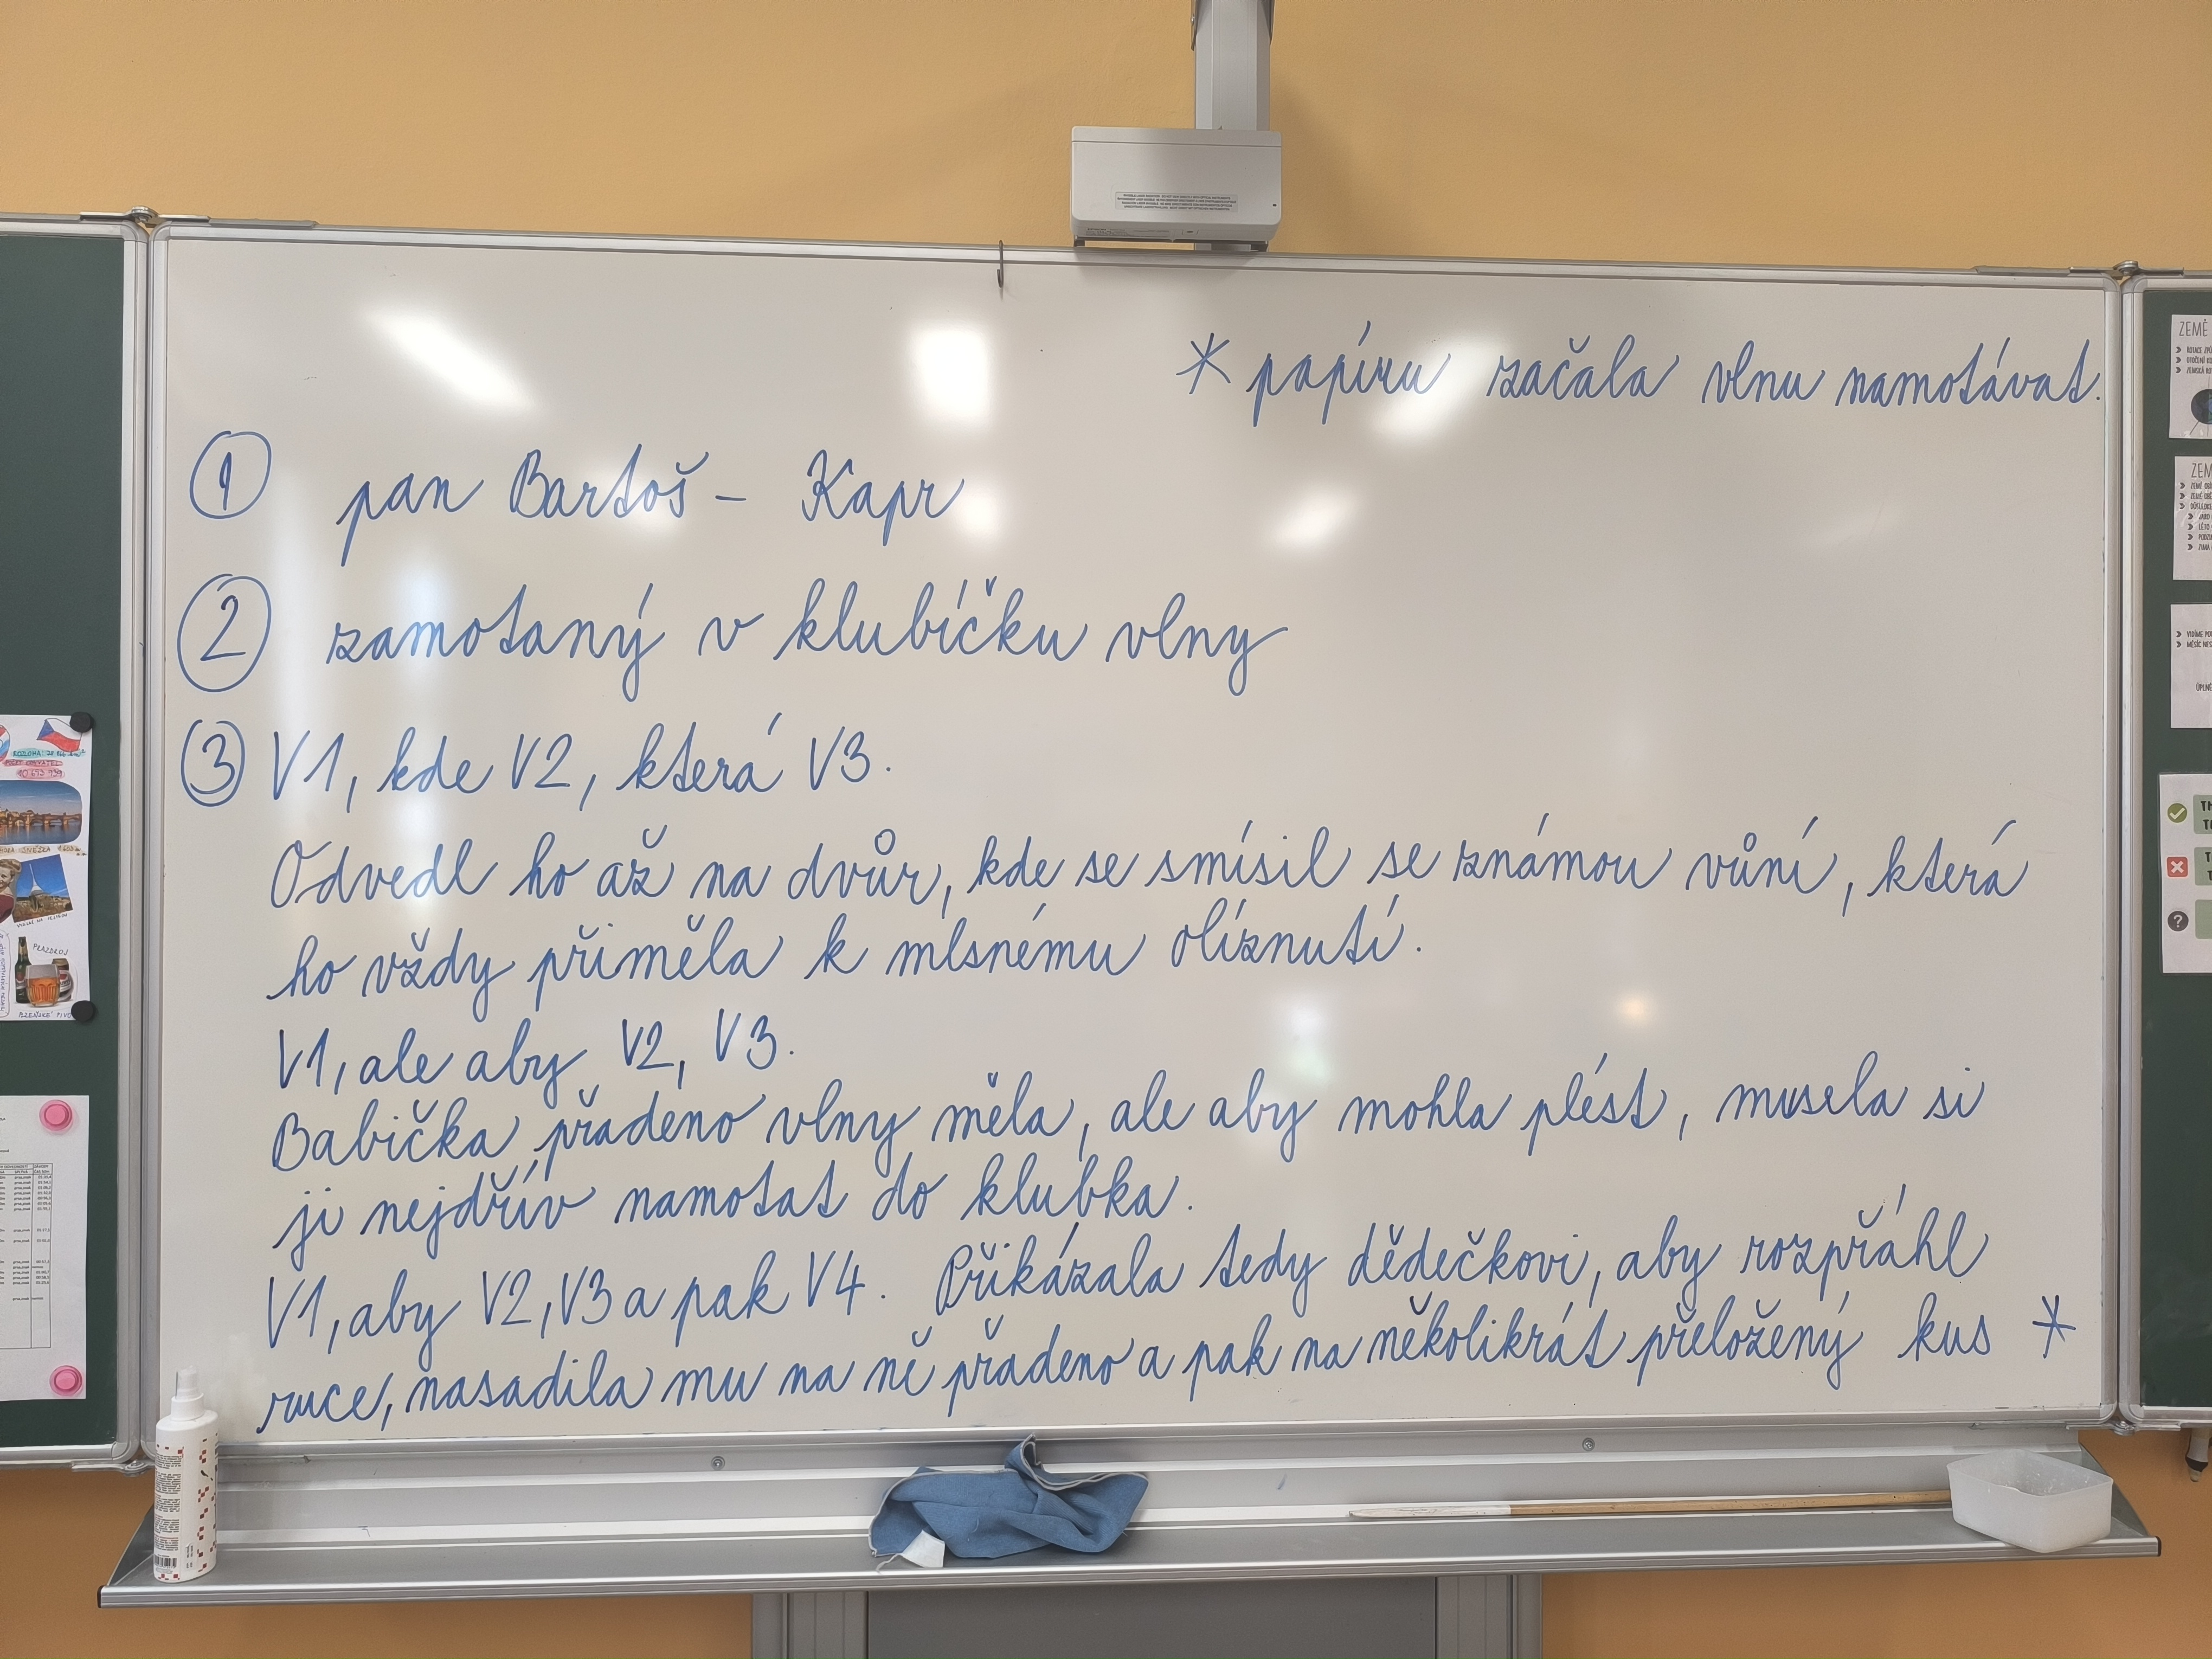 * papíru začala vlnu namotávat.
1 pan Bartoš – Kapr
2 zamotaný v klubíčku vlny
3 V1, kde V2, která V3.
Odvedl ho až na dvůr, kde se smísil se známou vůní, která
ho vždy přiměla k mlsnému olíznutí.
V1, ale aby V2, V3.
Babička přadeno vlny měla, ale aby mohla plést, musela si
ji nejdřív namotat do klubka.
V1, aby V2, V3 a pak V4. Přikázala tedy dědečkovi, aby rozpřáhl
ruce, nasadila mu na ně přadeno a pak na několikrát přeložený kus *
PRAZDROJ
ZEMĚ